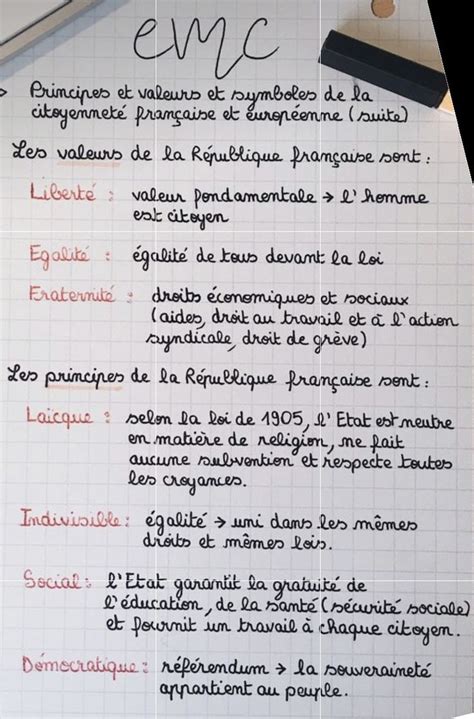 emc
> Principes et valeurs et symboles de la
citoyenneté française et européenne (suite)
Les valeurs de la République française sont :
Liberté : valeur fondamentale → l'homme
est citoyen
Egalité : égalité de tous devant la loi
Fraternité : droits économiques et sociaux
(aides, droit au travail et à l'action
syndicale, droit de grève)
Les principes de la République française sont :
Laïcque : selon la loi de 1905, l'Etat est neutre
en matière de religion, ne fait
aucune subvention et respecte toutes
les croyances.
Indivisible : égalité → uni dans les mêmes
droits et mêmes lois.
Social : l'Etat garantit la gratuité de
l'éducation, de la santé (sécurité sociale)
et fournit un travail à chaque citoyen.
Démocratique : référendum → la souveraineté
appartient au peuple.